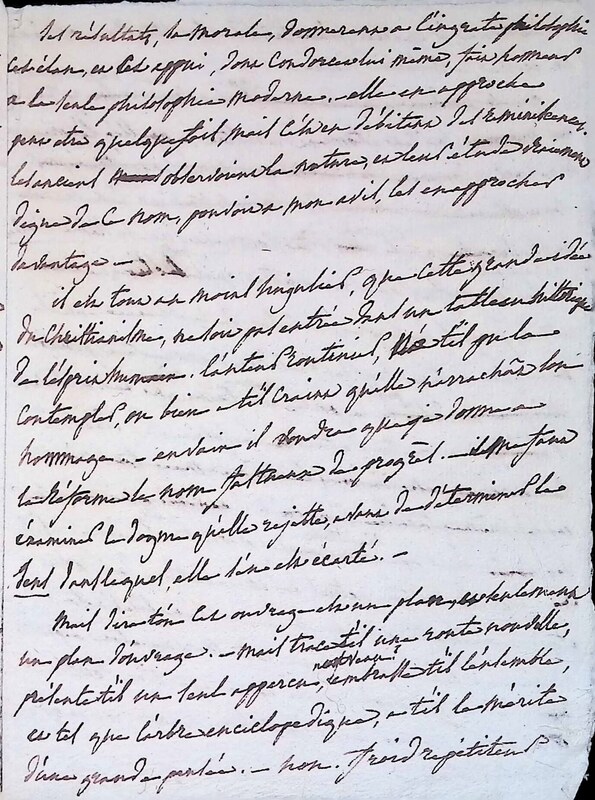 les résultats, la morale, donnerent a l'ingrate philosophie
cet élan, et cet appui, dont Condorcet lui même, fait honneur
a la seule philosophie moderne. - elle en approche
peut etre quelquefois, mais c'est en débitant des réminiscences,
les anciens observoient la nature, et leurs étude vraiment
digne de ce nom, pouvoit a mon avis, les en approcher
davantage -
il est tout au moins singulier, que cette grande idée
du Christianisme, ne soit pas entrée dans un tableau historique
de l'esprit humain. l'auteur soutenir, n'a t'il pu la
contempler, ou bien a t'il craint qu'elle n'arrachât son
hommage - envain il voudra que je donne a
la réforme le nom fastueux de progrès. - il me faut
éxaminer le dogme qu'elle rejette, avant de déterminer le
sens dans lequel, elle s'en est écarté. -
Mais dira t'on cet ouvrage est un plan, et seulement
un plan d'ouvrage. - Mais trace t'il une route nouvelle,
présente t'il un seul apperçu, nouveau? embrasse t'il l'ensemble,
et tel que l'arbre enciclopedique, a t'il le mérite
d'une grande pensée. - non. froid répétiteur